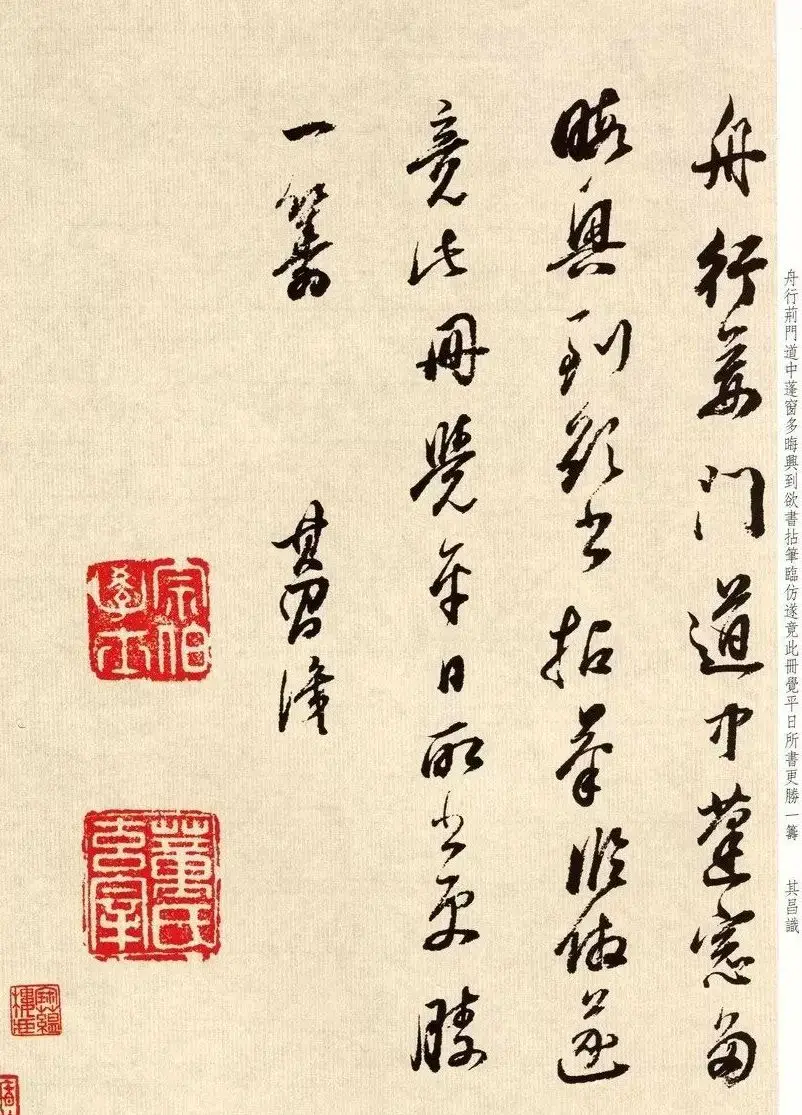 舟行荊門道中蓬窗多晦興到欲書拈筆臨仿遂竟此冊覺平日所書更勝一籌　其昌識
舟行荊門道中蓬窓多
晦興到欲書拈筆臨仿遂
竟此冊覺平日所書更勝
一籌　其昌識
宗伯學士
董氏玄宰